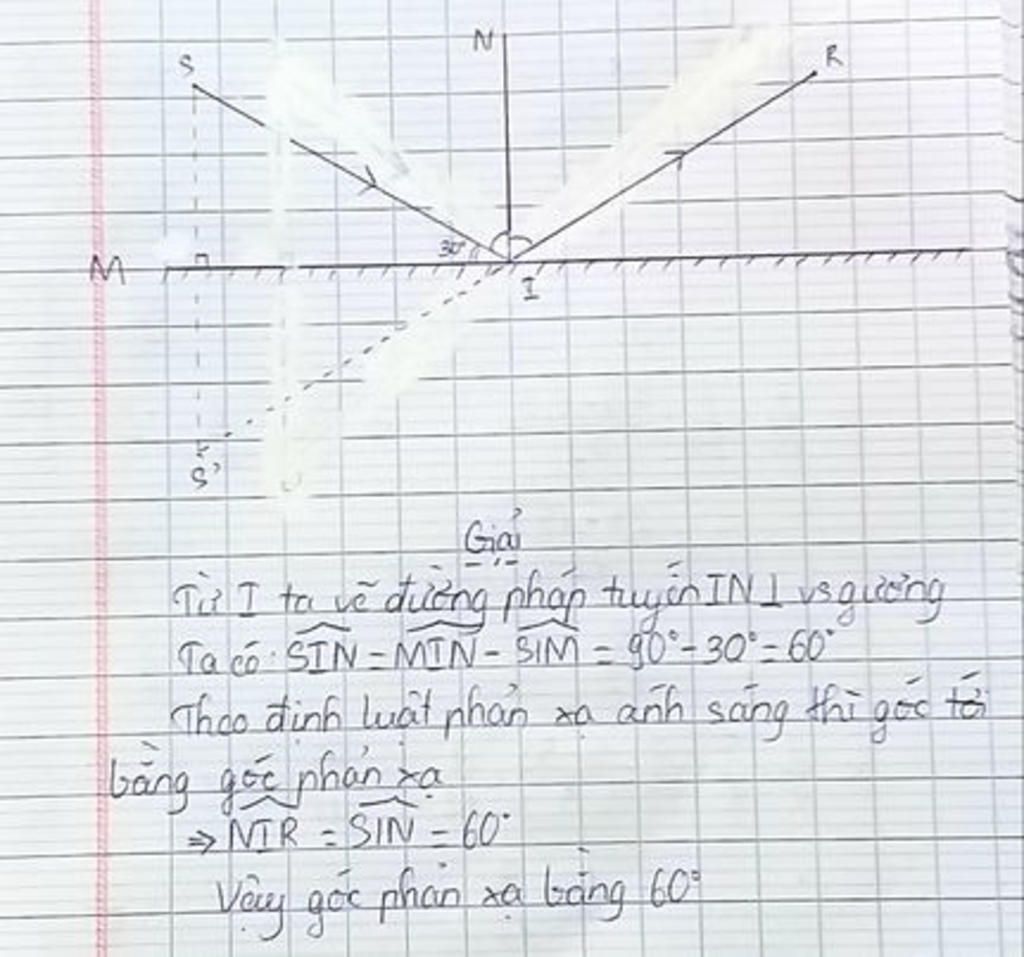 S
N
R
30°
M
I
S'
Giải
Từ I ta vẽ đường pháp tuyến IN⊥ vs gương
Ta có: SIN = MIN - SIM = 90° - 30° = 60°
Theo định luật phản xạ ánh sáng thì góc tới
bằng góc phản xạ
⇒ NIR = SIN = 60°
Vậy góc phản xạ bằng 60°